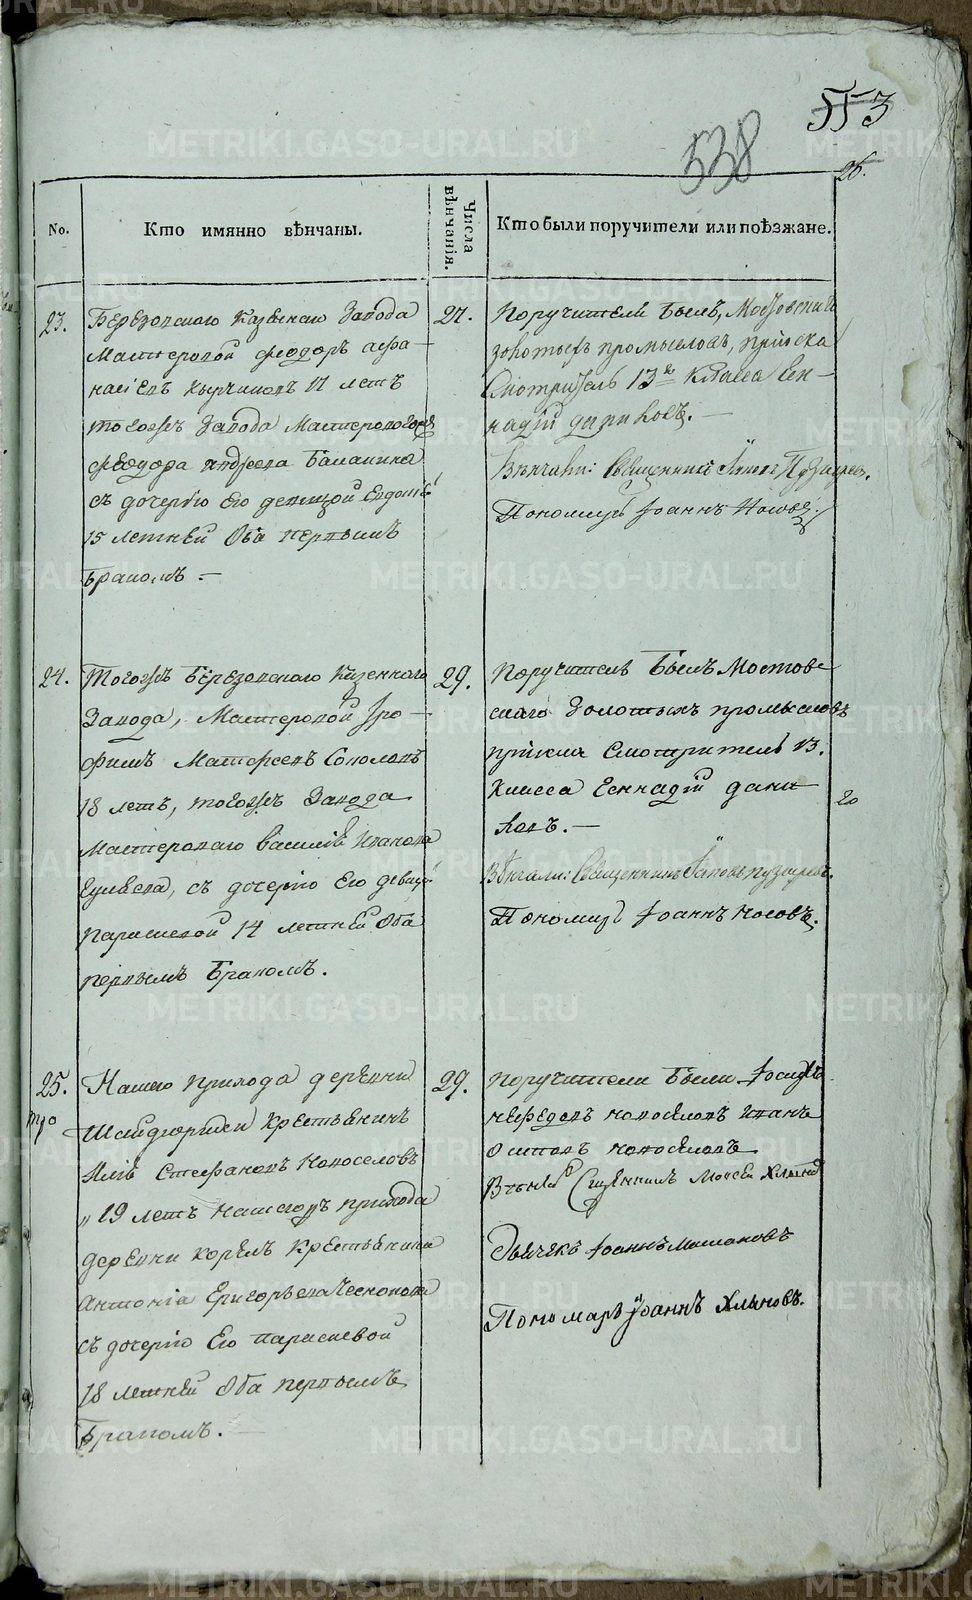 553
538
26.
No.
Кто имянно вѣнчаны.
Числа вѣнчанія.
Кто были поручители или поѣзжане.
23.
Березовскаго Казеннаго Завода
Мастеровой Феодоръ Афа-
насіевъ 17 летъ
тогожъ Завода Мастероваго
Феодора Андреева Баланина
съ дочерію его девицой Евдокіей
15 летней Оба первымъ
бракомъ. —
27.
Поручители Былъ, Мостовскихъ
золотыхъ промысловъ, пріиска
Смотритель 13го класса Ген-
надій Даниловъ. —
Венчали: Священникъ Іаковъ Пузыревъ.
Пономарь Іоаннъ Носовъ.
24.
Тогожъ Березовскаго Казеннаго
Завода, Мастеровой Тро-
фимъ Матфеевъ Соколовъ
18 летъ, тогожъ Завода
Мастероваго Василія Иванова
съ дочерію его девицей
Параскевой 14 летней Оба
первымъ Бракомъ.
29.
Поручитель Былъ Мостов-
скаго Золотыхъ промысловъ
пріиска Смотритель 13.
Класса Геннадій Дани-
ловъ. —
Вѣнчали: Священникъ Іаковъ Пузыревъ.
Пономарь Іоаннъ Носовъ.
го
25.
Нашего прихода деревни
Шайдурихи Крестьянинъ
Стефановъ Новоселовъ
19 летъ нашегожъ прихода
деревни Корелъ Крестьянина
Антонія Григорьева Чеснокова
съ дочерію его Параскевой
18 летней Оба первымъ
Бракомъ. —
29.
Поручители Были Іосифъ
Нефедовъ Новоселовъ Иванъ
Осиповъ Новоселовъ
Священникъ Моисей Хлыновъ
Дьячекъ Іоаннъ
Пономарь Іоаннъ Хлыновъ.
METRIKI.GASO-URAL.RU